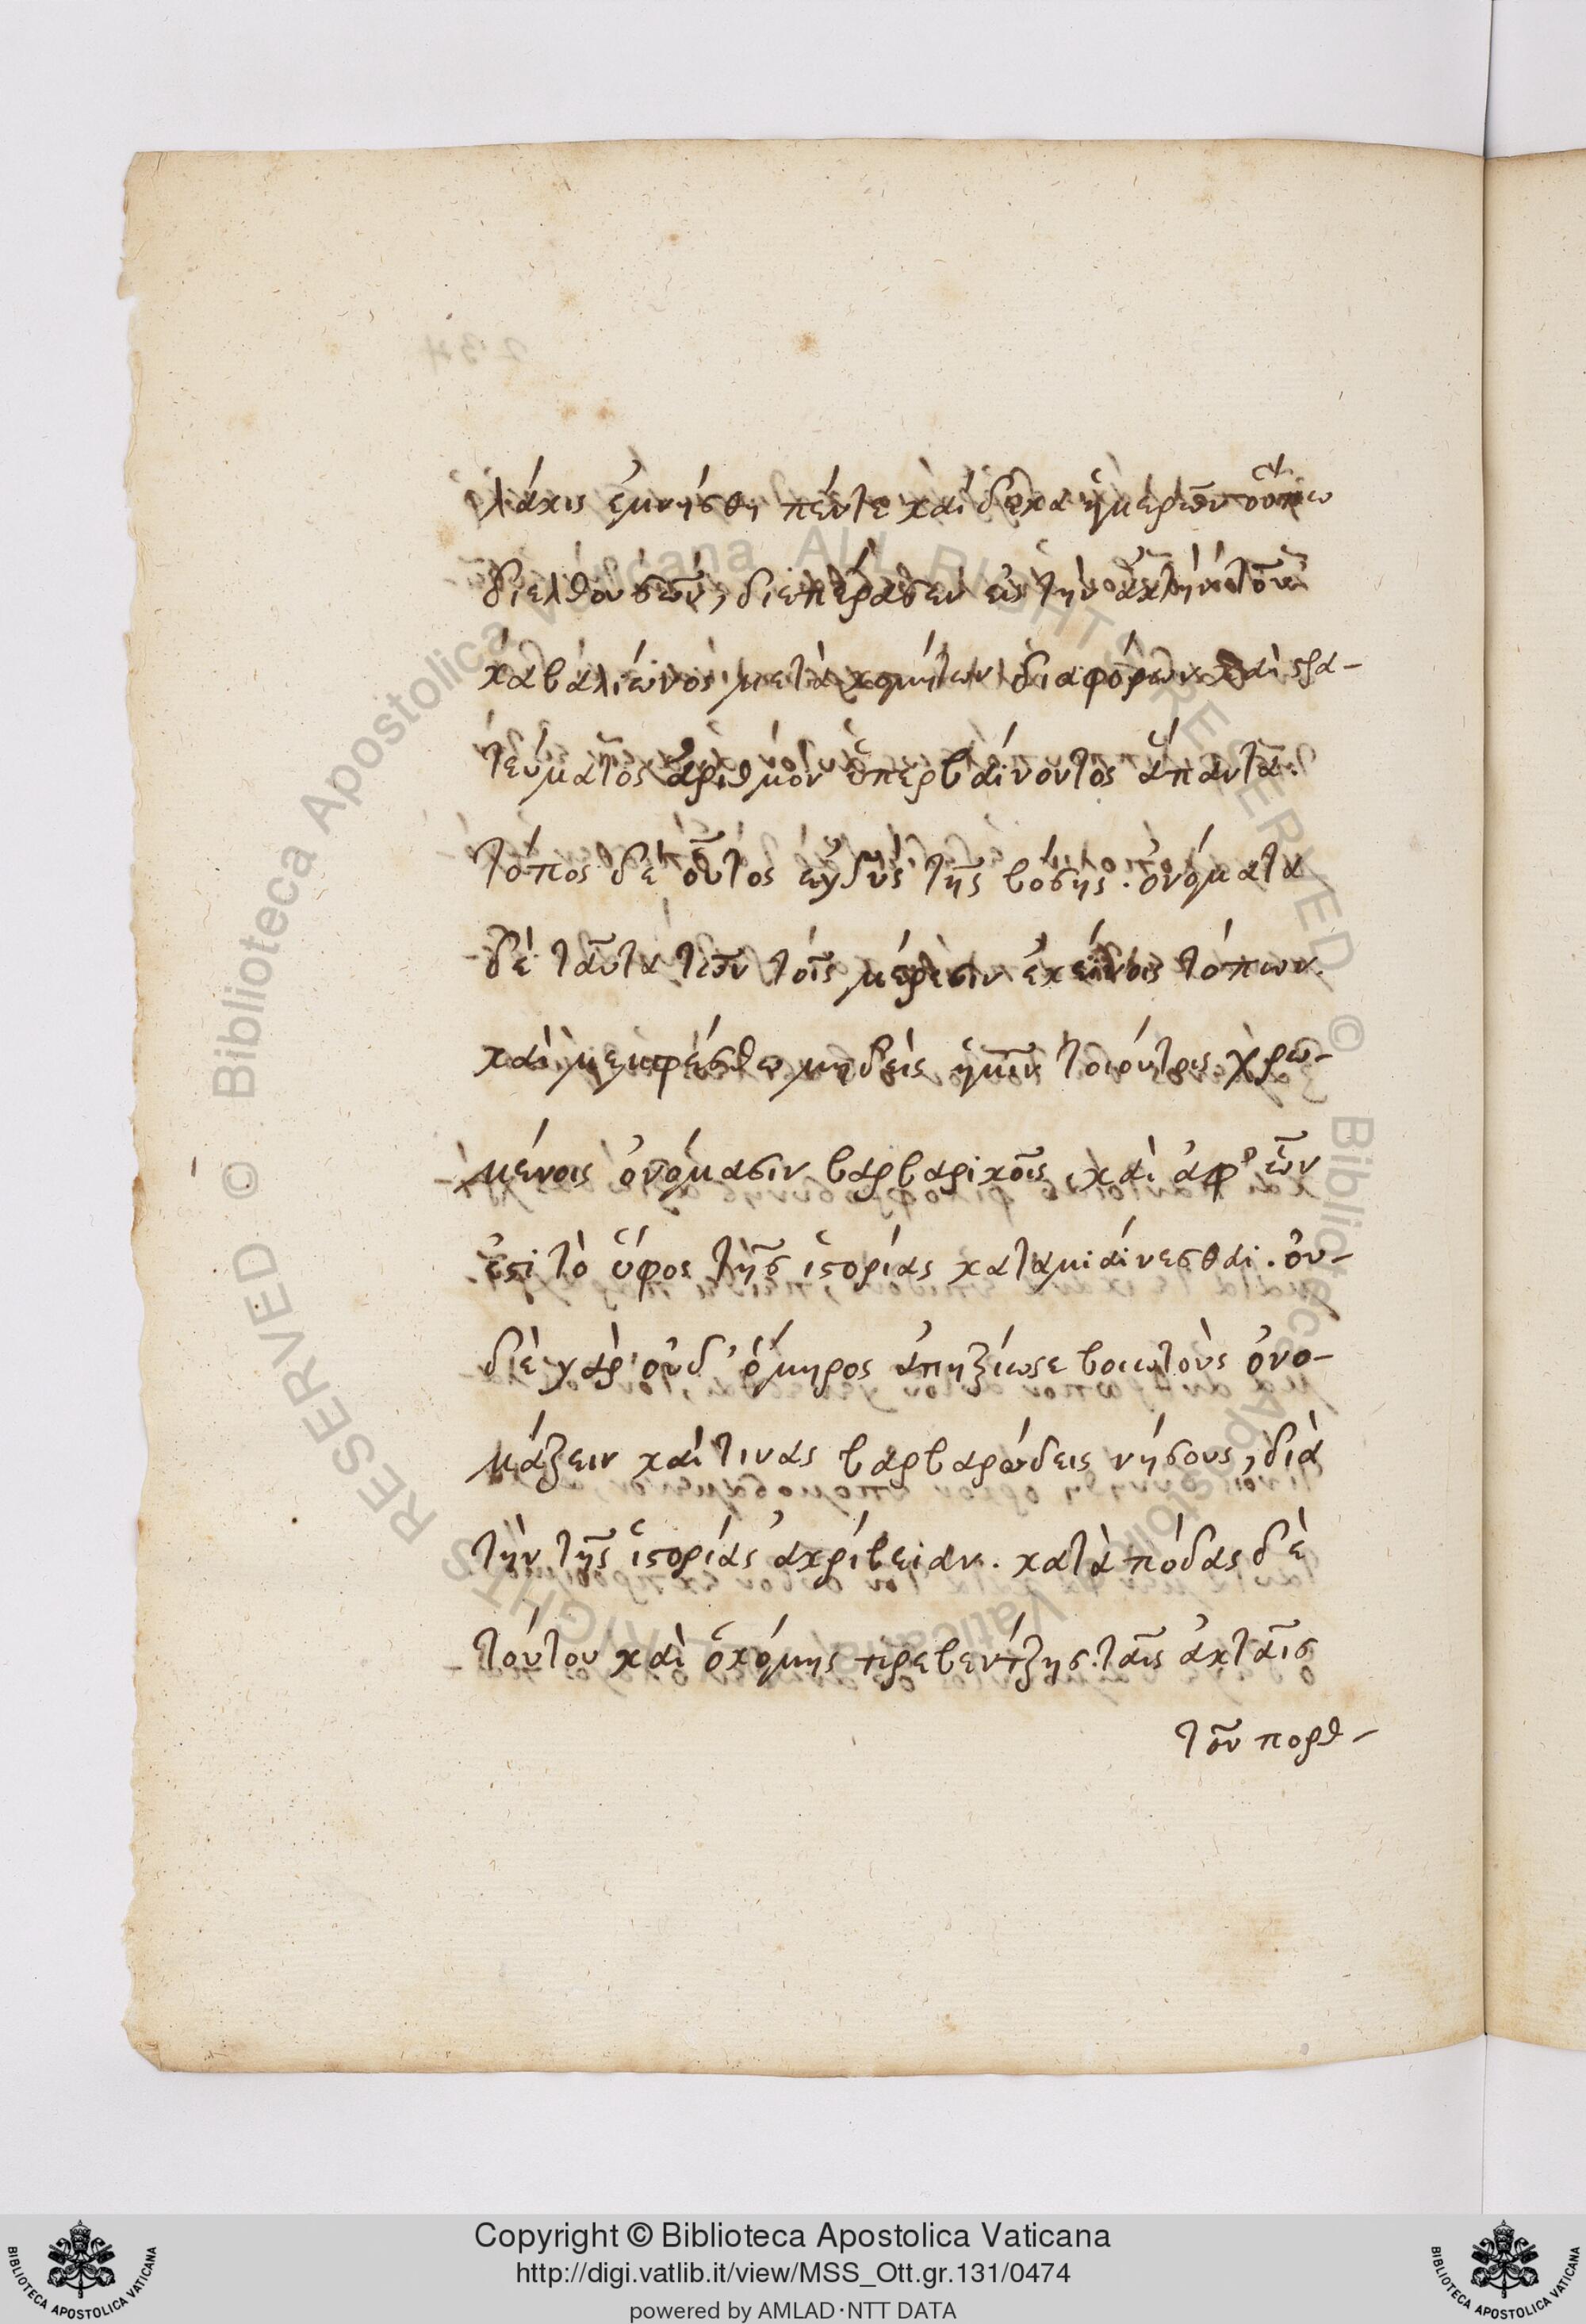 λάκις ἐμνήσθη πέντε καὶ δέκα ἡμερῶν οὔπω
διελθουσῶν, διεπέρασεν εἰς τὴν ἀκτὴν τοῦ
καβαλιώνος μετὰ κομήτων διαφόρων καὶ στρα-
τεύματος ἀριθμὸν ὑπερβαίνοντος ἅπαντα.
τόπος δὲ οὗτος ἐγγὺς τῆς βόσης. ὀνόματα
δὲ ταῦτα τῶν τοῖς μέρεσιν ἐκείνοις τόπων.
καὶ μεμφέσθω μηδεὶς ἡμῖν τοιούτοις χρω-
μένοις ὀνόμασιν βαρβαρικοῖς, καὶ ἀφ' ὧν
ἐστὶ τὸ ὕφος τῆς ἱστορίας καταμιαίνεσθαι. οὐ-
δὲ γὰρ οὐδ' ὅμηρος ἀπηξίωσε βοιωτοὺς ὀνο-
μάζειν καί τινας βαρβαρώδεις νήσους, διὰ
τὴν τῆς ἱστορίας ἀκρίβειαν. κατὰ πόδας δὲ
τούτου καὶ ὁ κόμης πρεβέντζης. ταῖς ἀκταῖς
τοῦ πορθ-
Copyright © Biblioteca Apostolica Vaticana
http://digi.vatlib.it/view/MSS_Ott.gr.131/0474
powered by AMLAD·NTT DATA
BIBLIOTECA APOSTOLICA VATICANA
BIBLIOTECA APOSTOLICA VATICANA